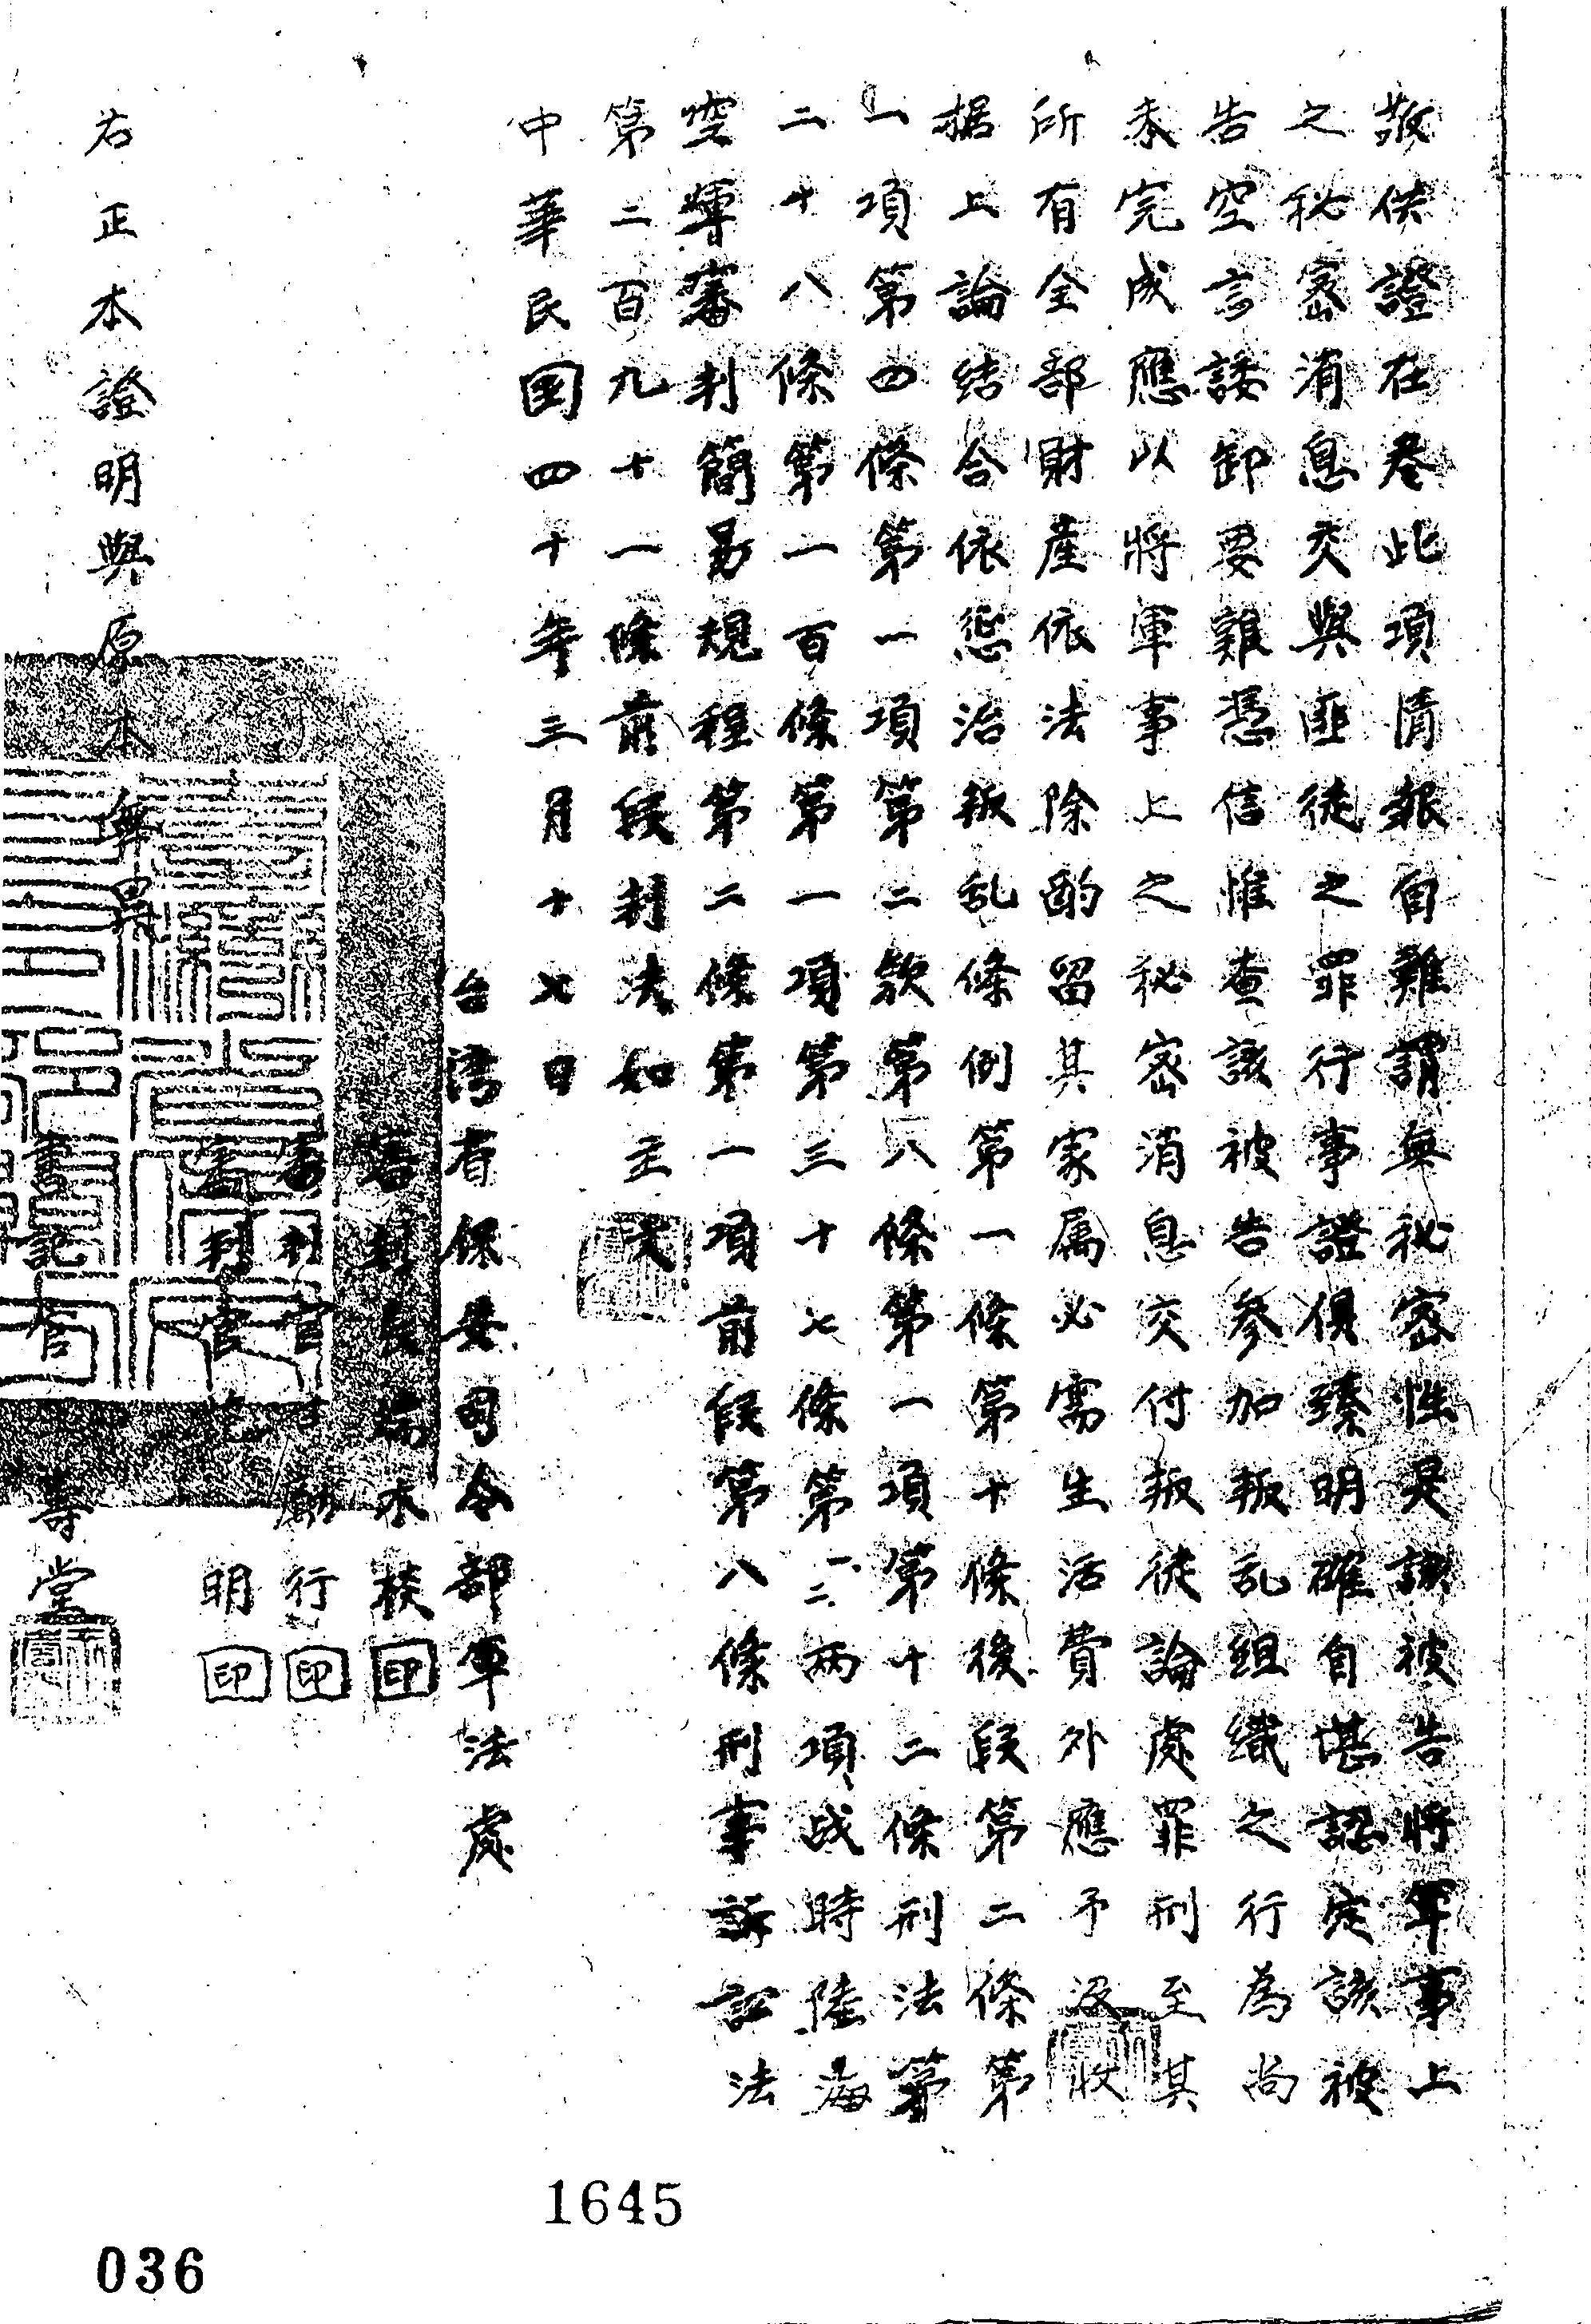 敬供證在卷此項情報自難謂無秘密性是該被告將軍事上
之秘密消息交與匪徒之罪行事證俱臻明確自堪認定該被
告空言諉卸要難憑信惟查該被告參加叛乱組織之行為尚
未完成應以將軍事上之秘密消息交付叛徒論處罪刑至其
所有全部財產依法除酌留其家属必需生活費外應予没收
据上論結合依惩治叛乱條例第一條第十條後段第二條第
一項第四條第一項第二款第八條第一項第十二條刑法第
二十八條第一百條第一項第三十七條第一二兩項战時陸海
空軍審判簡易規程第二條第一項前段第八條刑事訴訟法
第二百九十一條前段判决如主文
中華民国四十年三月十七日
台湾省保安司令部軍法處
審判長 水棪 印
審判官 行 印
審判官 明 印
右正本證明與原本無異
書記官 壽堂
1645
036